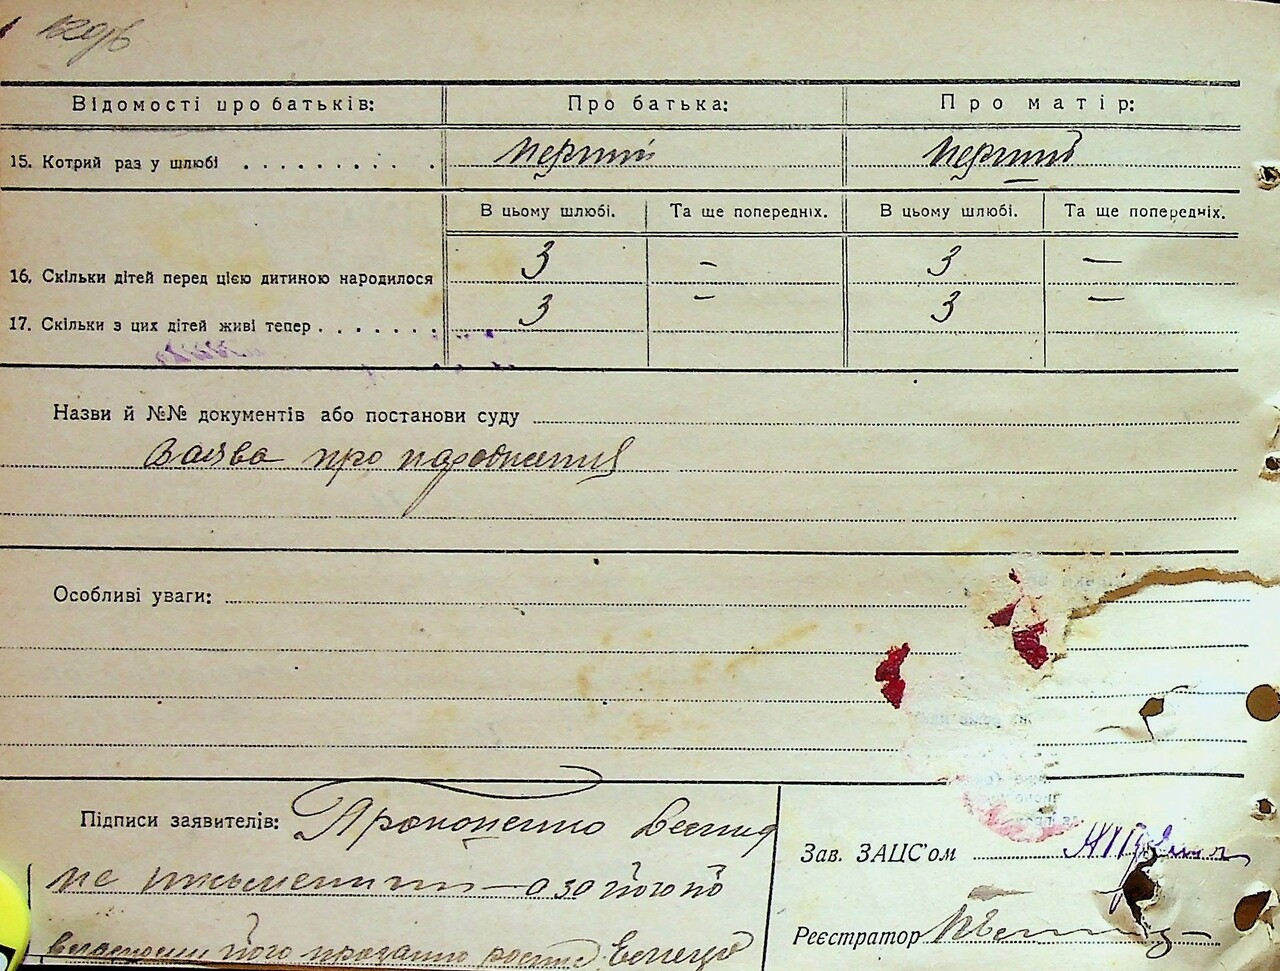 Відомості про батьків: Про батька: Про матір:
15. Котрий раз у шлюбі . . . . . . . . . . перший перший
В цьому шлюбі. Та ще попередніх. В цьому шлюбі. Та ще попередніх.
16. Скільки дітей перед цією дитиною народилося 3 – 3 –
17. Скільки з цих дітей живі тепер . . . . . . . 3 – 3 –
Назви й №№ документів або постанови суду
Заява про народження
Особливі уваги:
Підписи заявителів: Прокопенко
не письменний – а за його
його прозанню
Зав. ЗАЦС'ом
Реєстратор